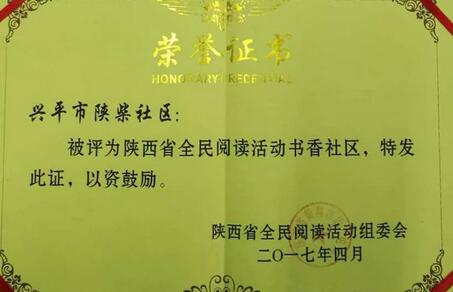 荣誉证书
HONORARY CREDENTIAL
兴平市陕柴社区:
被评为陕西省全民阅读活动书香社区，特发
此证，以资鼓励。
陕西省全民阅读活动组委会
二〇一七年四月